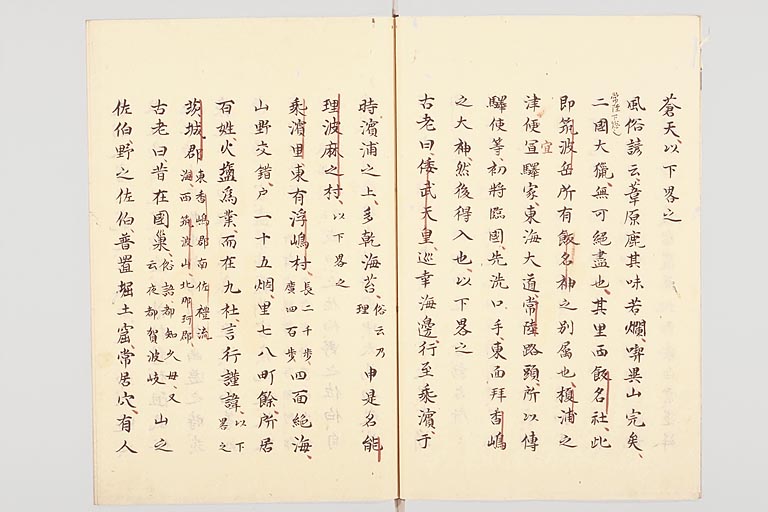 蒼天以下畧之
風俗諺云葦原鹿其味若爛喫異山宍矣
常陸下総
二國大獵無可絕盡也其里西飯名社此
即筑波岳所有飯名神之別属也榎浦之
津便置驛家東海大道常陸路頭所以傳
宜
驛使等初將臨國先洗口手東面拜香嶋
之大神然後得入也以下畧之
古老曰倭武天皇巡幸海邊行至乗濱于
時濱浦之上多乾海苔俗云乃理申是名能
理波麻之村以下畧之
乗濱里東有浮嶋村長二千步廣四百步四面絕海
山野交錯戶一十五烟里七八町餘所居
百姓火盬爲業而在九社言行謹諱以下畧之
茨城郡東香嶋郡南佐禮流海西筑波山北那珂郡
古老曰昔在國巢俗語都知久母又云夜都賀波岐山之
佐伯野之佐伯普置堀土窟常居穴有人